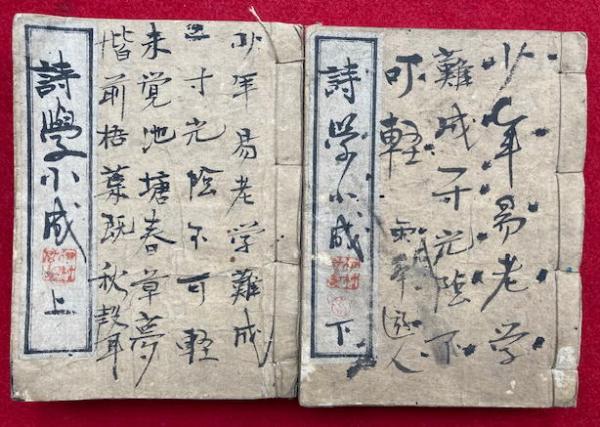 少年易老学
難成一寸光陰不
可軽
詩学小成 下
少年易老学難成
一寸光陰不可軽
未覚池塘春草夢
偕前梧葉既秋聲
詩學小成 上